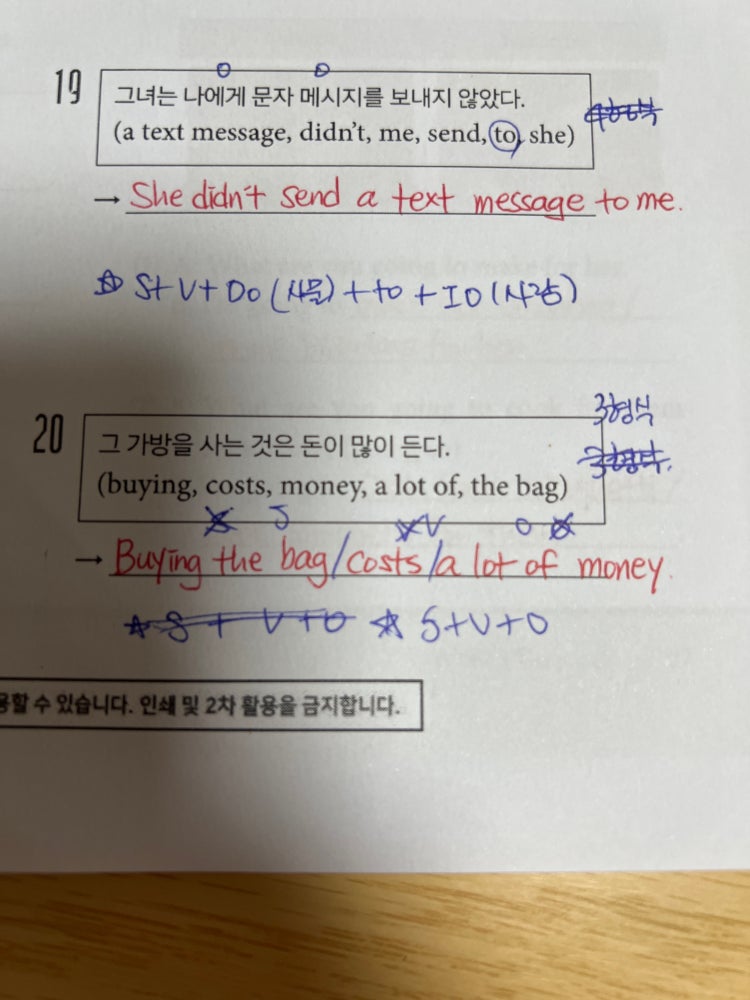 19
그녀는 나에게 문자 메시지를 보내지 않았다.
(a text message, didn't, me, send, to, she)
→ She didn't send a text message to me.
☆ S+V+DO (사물) + to + IO (사람)
20
3형식
그 가방을 사는 것은 돈이 많이 든다.
(buying, costs, money, a lot of, the bag)
S V O
→ Buying the bag/costs/a lot of money.
☆ S + V + O ☆ S+V+O
용할 수 있습니다. 인쇄 및 2차 활용을 금지합니다.